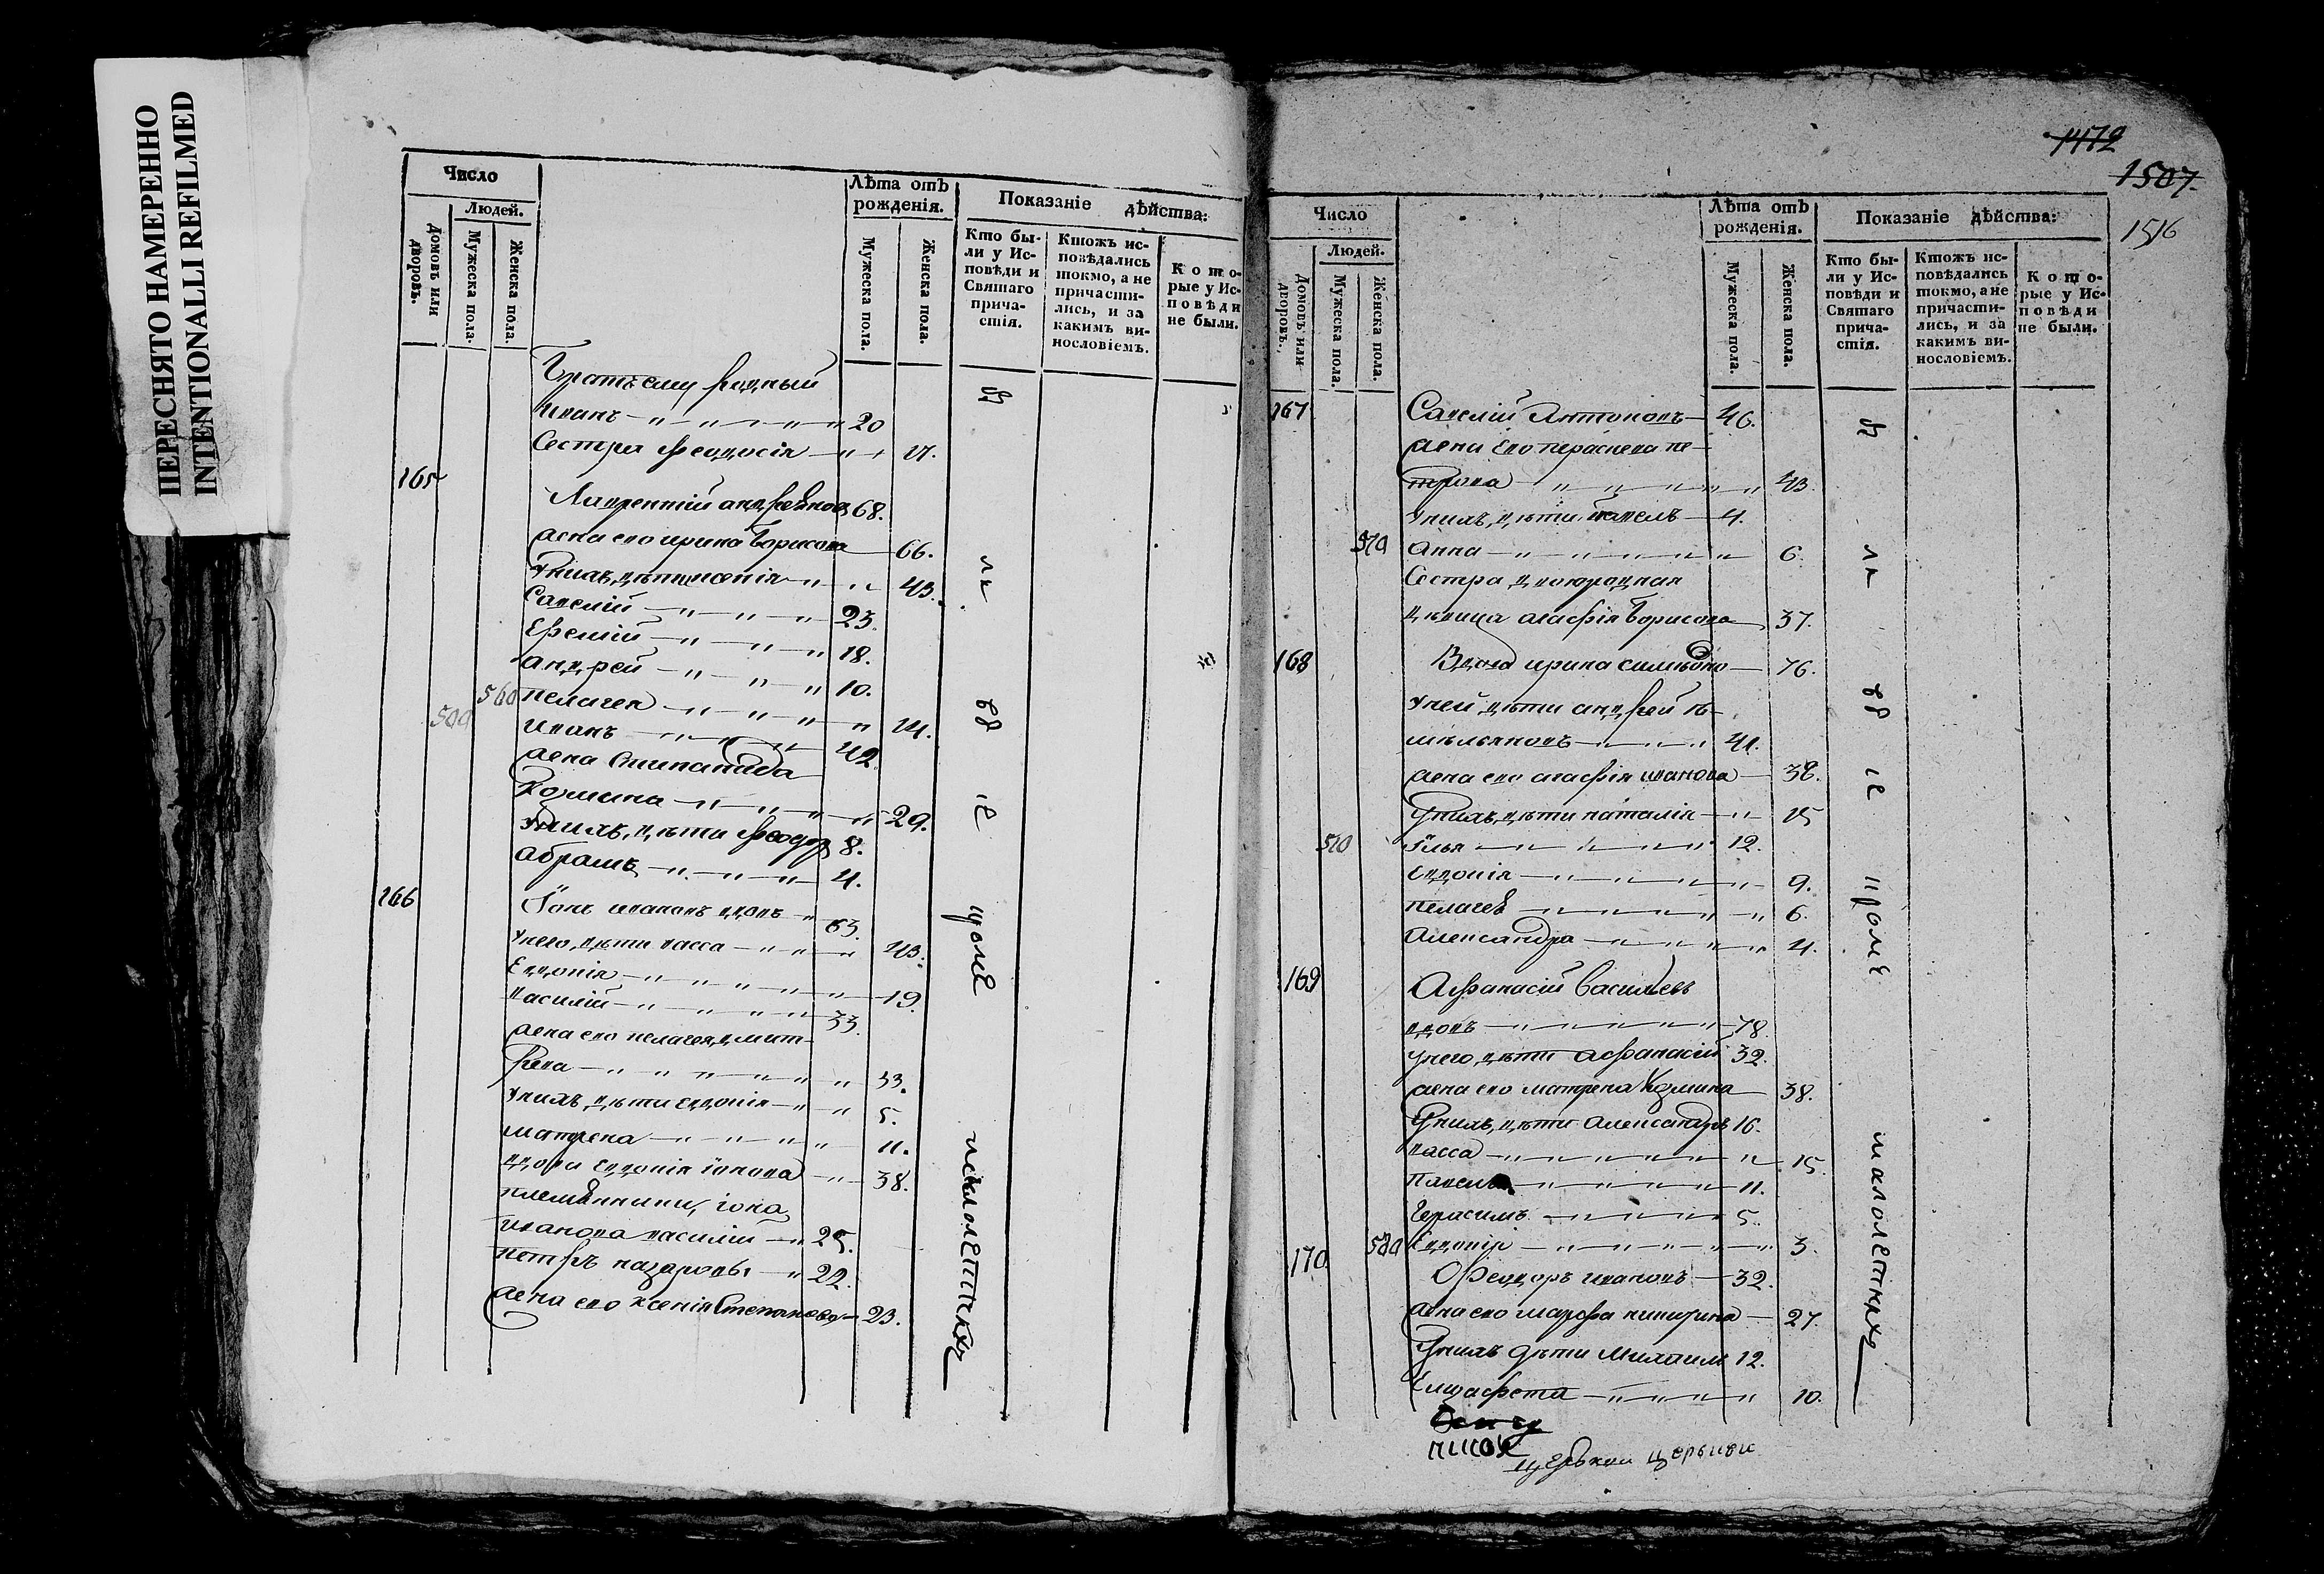 ПЕРЕСНЯТО НАМЕРЕННО
INTENTIONALLI REFILMED
Число
Людей.
Домовъ или дворовъ.
Мужеска пола.
Женска пола.
Лѣта отъ рожденія.
Мужеска пола.
Женска пола.
Показаніе дѣйства:
Кто бы-
ли у Ис-
повѣди и
Святаго
прича-
стія.
Ктожъ ис-
повѣдались
токмо, а не
причасти-
лись, и за
какимъ ви-
нословіемъ.
Кото-
рые у Ис-
повѣди
не были.
Братъ ему родный
Иванъ 20
Сестра Феодосія 17.
165 Лаврентій Андреевъ 68.
Жена его Ирина Борисова 66.
У нихъ дѣти Ксенія 43.
Савелій 23.
Ефемій 18.
Андрей 10.
560 Пелагея 14.
500 Иванъ 42.
Жена Степанида
Козмина 29.
У нихъ дѣти Феодоръ 8.
Абрамъ 4.
166 Іонъ Ивановъ вдовъ 63.
У него дѣти Васса 43.
Евдокія 19.
Василій 33.
Жена его Пелагея Дмит-
рева 33.
У нихъ дѣти Евдокія 5.
Матрена 11.
Вдова Евдокія Іонова 38.
Племянники Іона
Иванова Василій 25.
Петръ Назаровы 22.
Жена его Ксенія Степанова 23.
вси
исповѣ
кромѣ
малолетныхъ
1472
1507.
1516
Число
Людей.
Домовъ или дворовъ.
Мужеска пола.
Женска пола.
Лѣта отъ рожденія.
Мужеска пола.
Женска пола.
Показаніе дѣйства:
Кто бы-
ли у Ис-
повѣди и
Святаго
прича-
стія.
Ктожъ ис-
повѣдались
токмо, а не
причасти-
лись, и за
какимъ ви-
нословіемъ.
Кото-
рые у Ис-
повѣди
не были.
167 Савелій Антоновъ 46.
Жена его Параскева Пе-
трова 43.
У нихъ дѣти Павелъ 4.
570 Анна 6.
Сестра двоюродная
дѣвица Агафія Борисова 37.
168 Вдова Ирина Симеонова 76.
У ней дѣти Андрей Е-
мельяновъ 41.
Жена его Агафія Иванова 38.
У нихъ дѣти Наталія 15
510 Илья 12.
Евдокія 9.
Пелагея 6.
Александра 4.
169 Афанасій Васильевъ
вдовъ 78.
У него дѣти Афанасій 32.
Жена его Матрена Козмина 38.
У нихъ дѣти Александръ 16.
Васса 15.
Павелъ 11.
Герасимъ 5.
580 Евдокія 3.
170 Феодоръ Ивановъ 32.
Жена его Марфа Никитина 27.
У нихъ дѣти Михаилъ 12.
Елизафета 10.
кромѣ
малолетныхъ
церькви